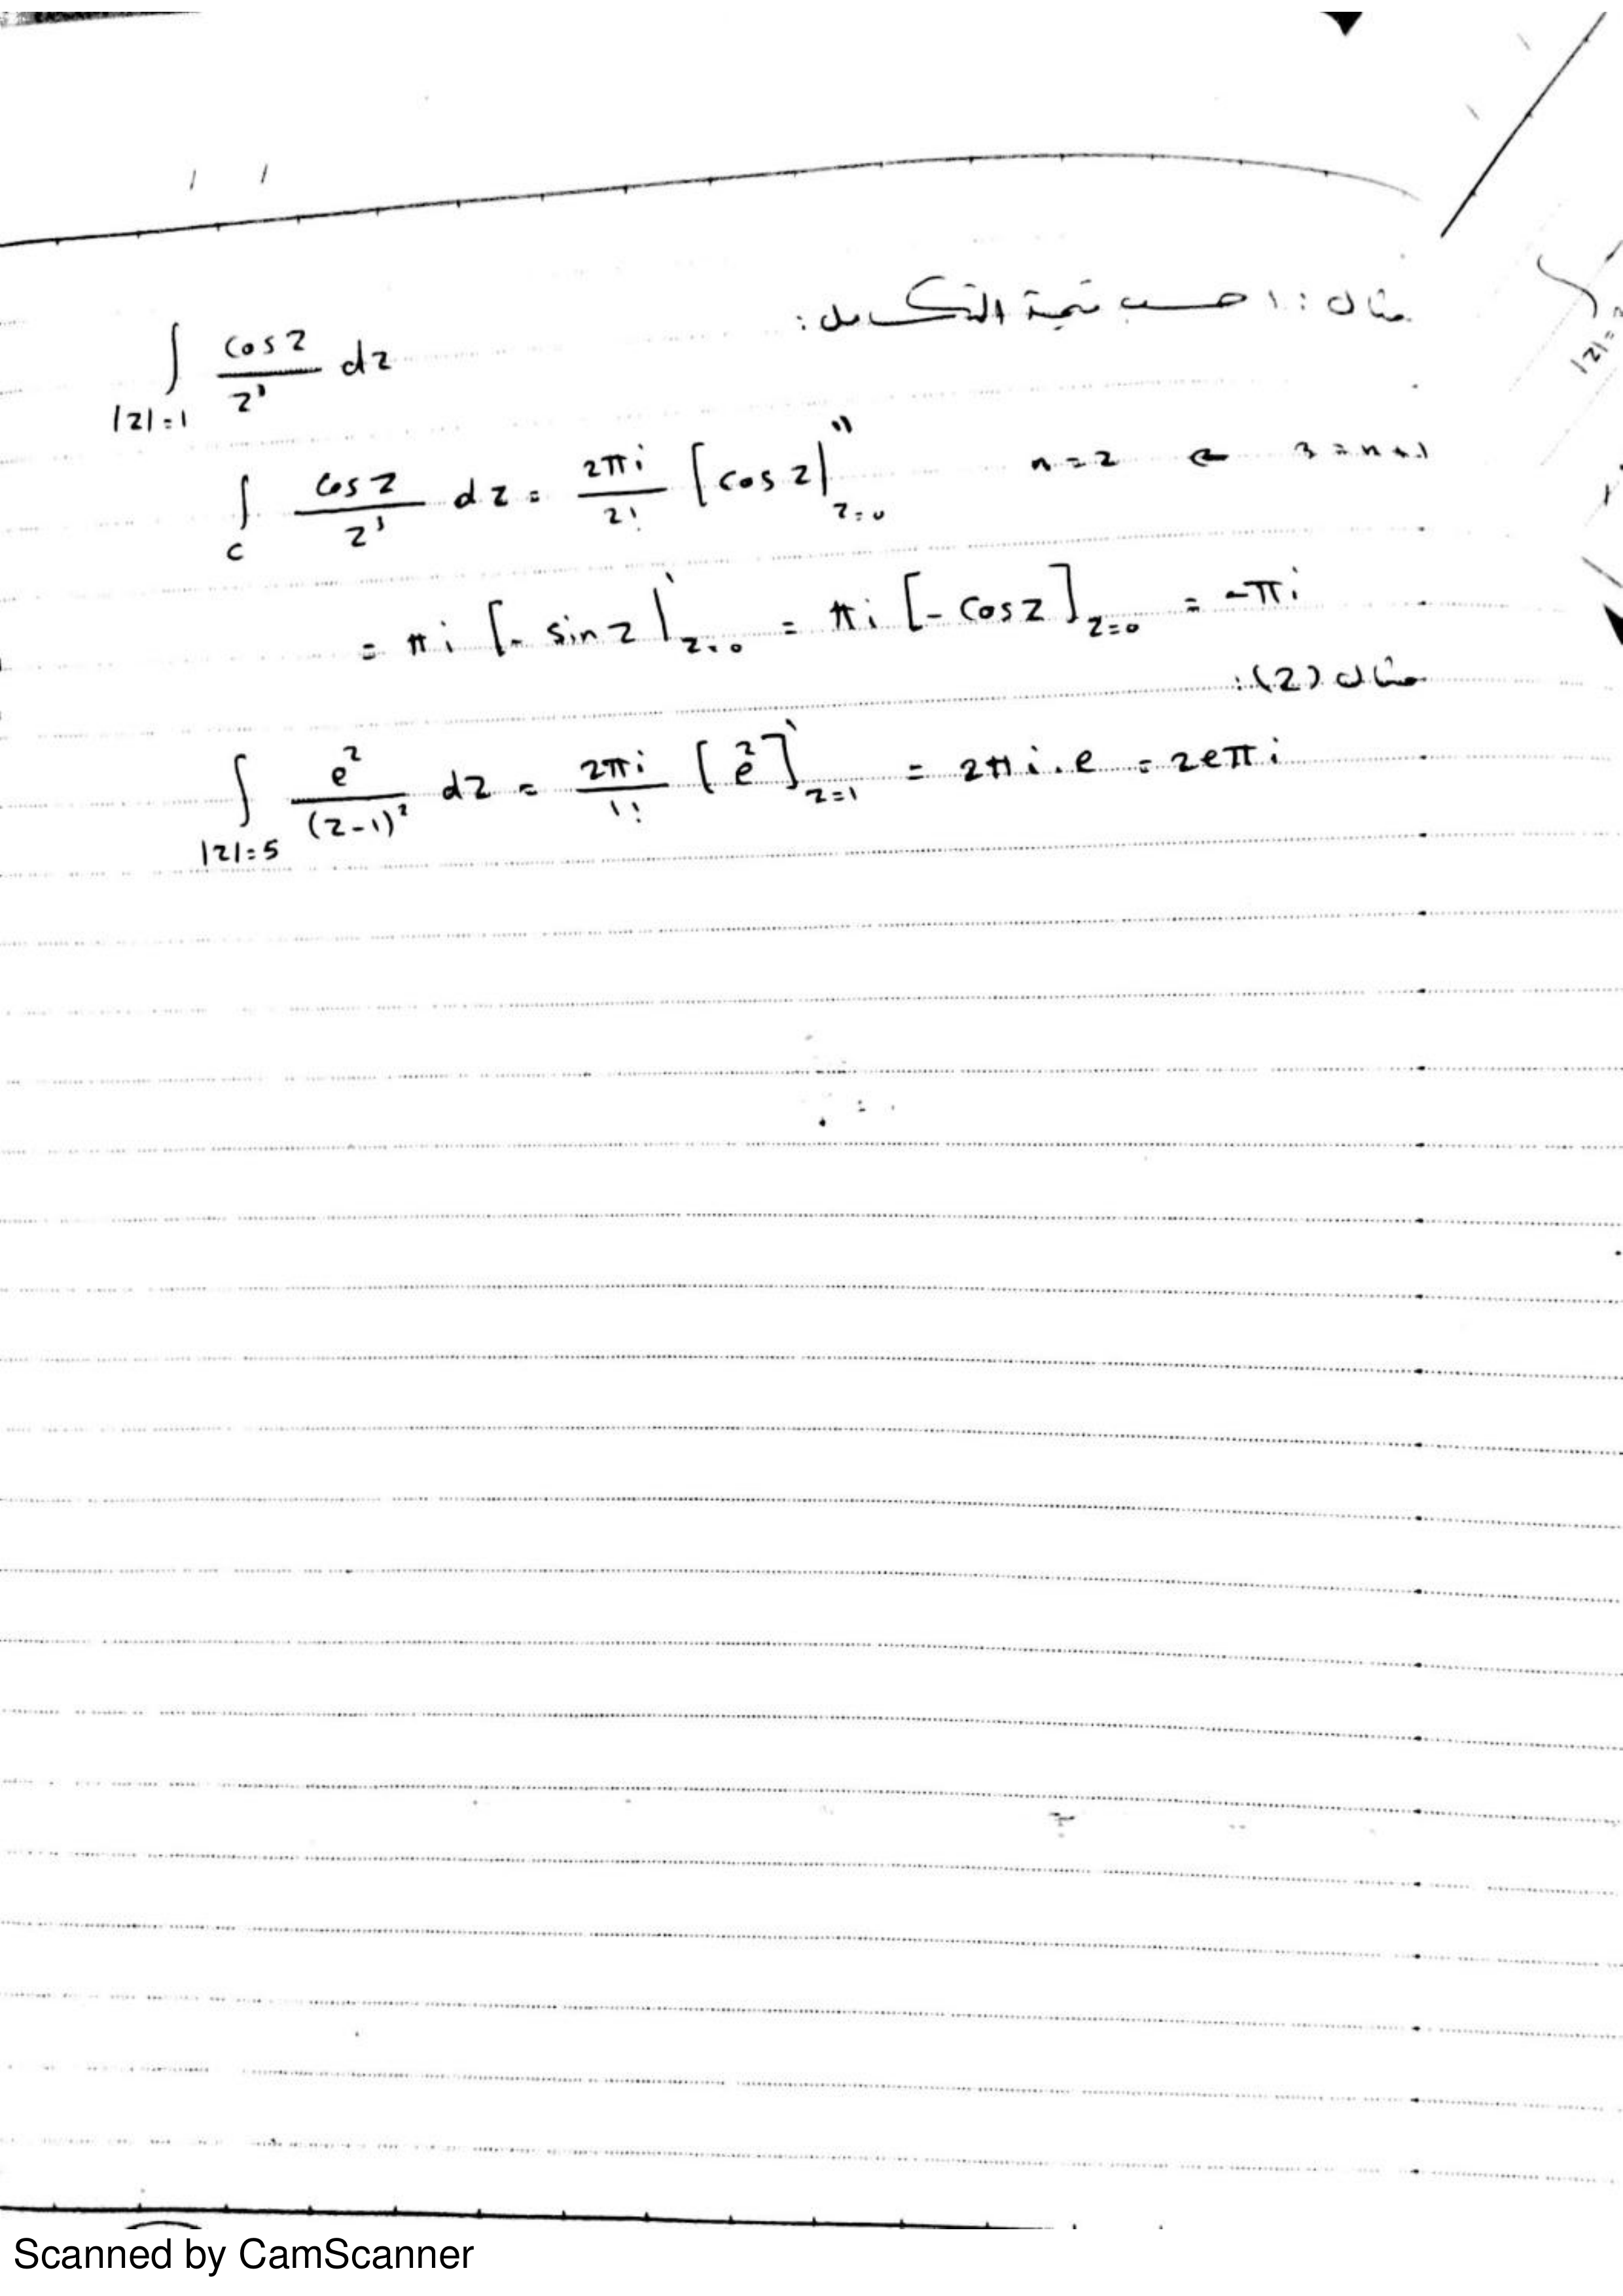 مثال: احسب قيمة التكامل:
∫|z|=1 cos z / z³ dz
∫c cos z / z³ dz = 2πi / 2! [cos z|''z=0 n=2 ← 3=n+1
= πi [- sin z|'z=0 = πi [- cos z]z=0 = -πi
مثال (2):
∫|z|=5 e^z / (z-1)² dz = 2πi / 1! [e^z]'z=1 = 2πi.e = 2eπi
|z|=
Scanned by CamScanner